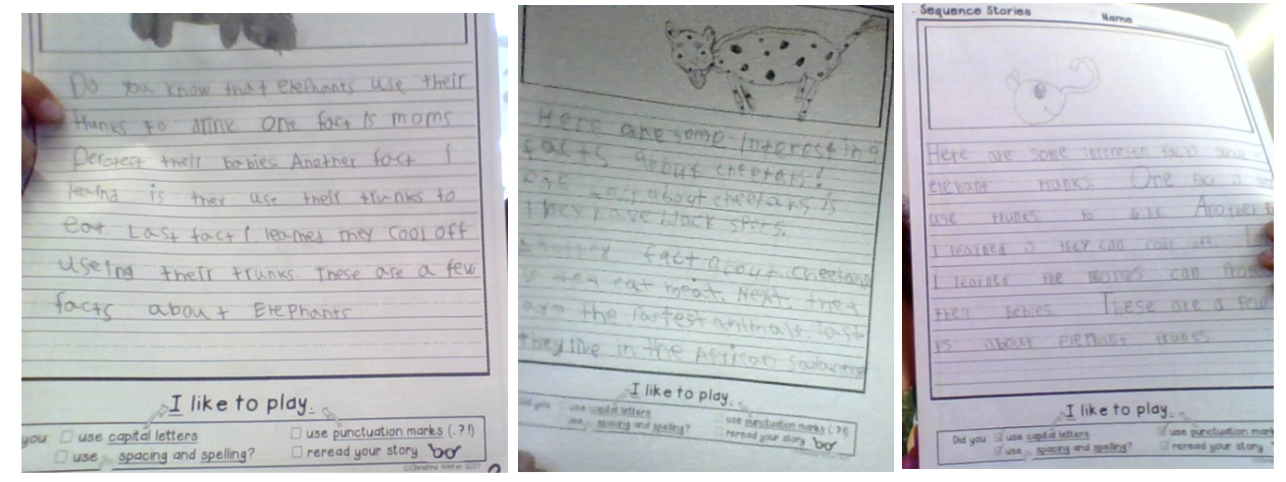 Do you know that elephants use their
trunks to drink One fact is moms
Peroteст their babies Another fact I
leaind is they use their trunks to
eat Last fact I learned they cool off
useing their trunks. These are a few
facts about Elephants
I like to play.
you use capital letters
use punctuation marks (.?!)
use spacing and spelling?
reread your story
Here are some interesting
facts about cheetahs!
about cheetahs is
They have black spots.
fact about cheetahs
is they eat meat. Next they
are the fastest animals. last
they live in the African
I like to play.
use capital letters
use punctuation marks (.?!)
use spacing and spelling?
reread your story
Sequence Stories Name
Here are some facts
elephant trunks. One
use trunks to Another
I learned is they can cool off.
I learned the can
their bebies These are a few
about elephant trunks.
I like to play.
Did you use capital letters
use punctuation mark
use spacing and spelling?
reread your story